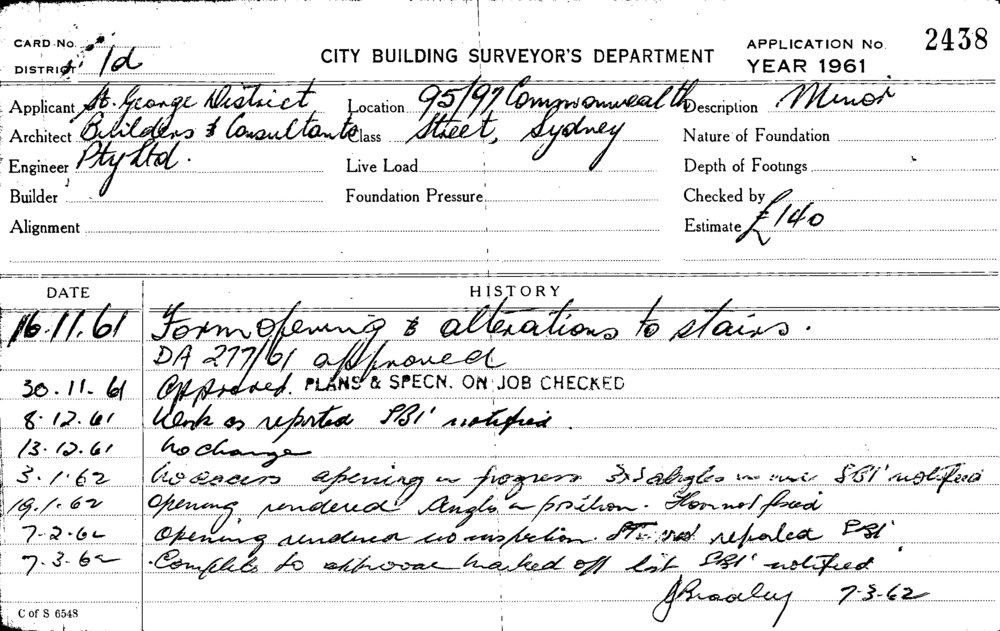 CARD No.
DISTRICT 1d
CITY BUILDING SURVEYOR'S DEPARTMENT
APPLICATION No. 2438
YEAR 1961
Applicant St. George District
Architect Builders & Consultants
Engineer Pty Ltd.
Builder
Alignment
Location 95/97 Commonwealth
Class Street, Sydney
Live Load
Foundation Pressure
Description Minor
Nature of Foundation
Depth of Footings
Checked by
Estimate £140
DATE HISTORY
16.11.61 Form opening & alterations to stairs.
DA 277/61 approved
30.11.61 Approved. PLANS & SPECN. ON JOB CHECKED
8.12.61 Work as reported SBI notified.
13.12.61 No change
3.1.62 No access opening in progress angles in SBI notified
19.1.62 Opening rendered Angles in position. not fixed
7-2-62 Opening rendered no inspection. reported SBI
7-3-62 Complete to approval marked off list SBI notified
JBradley 7-3-62
C of S 6548